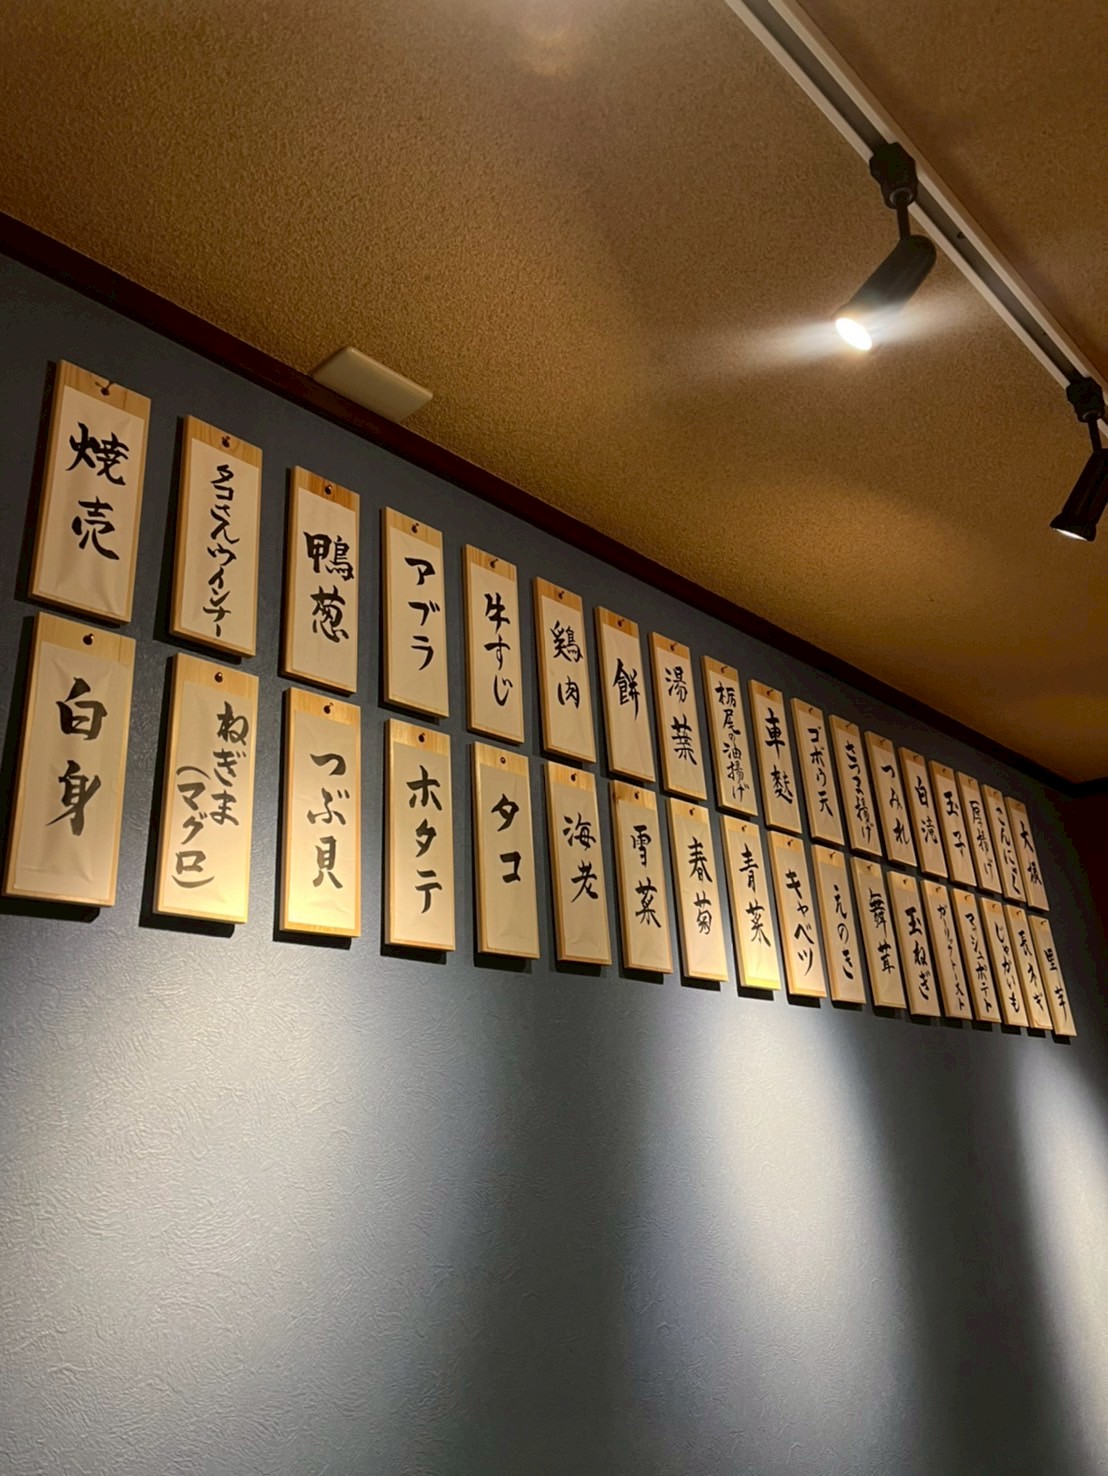 大根
こんにゃく
厚揚げ
玉子
白滝
つみれ
さつま揚げ
ゴボウ天
車麩
栃尾の油揚げ
湯葉
餅
鶏肉
牛すじ
アブラ
鴨葱
タコさんウインナー
焼売
里芋
長ネギ
じゃがいも
マッシュポテト
ガーリックトースト
玉ねぎ
舞茸
えのき
キャベツ
青菜
春菊
雪菜
海老
タコ
ホタテ
つぶ貝
ねぎま
(マグロ)
白身